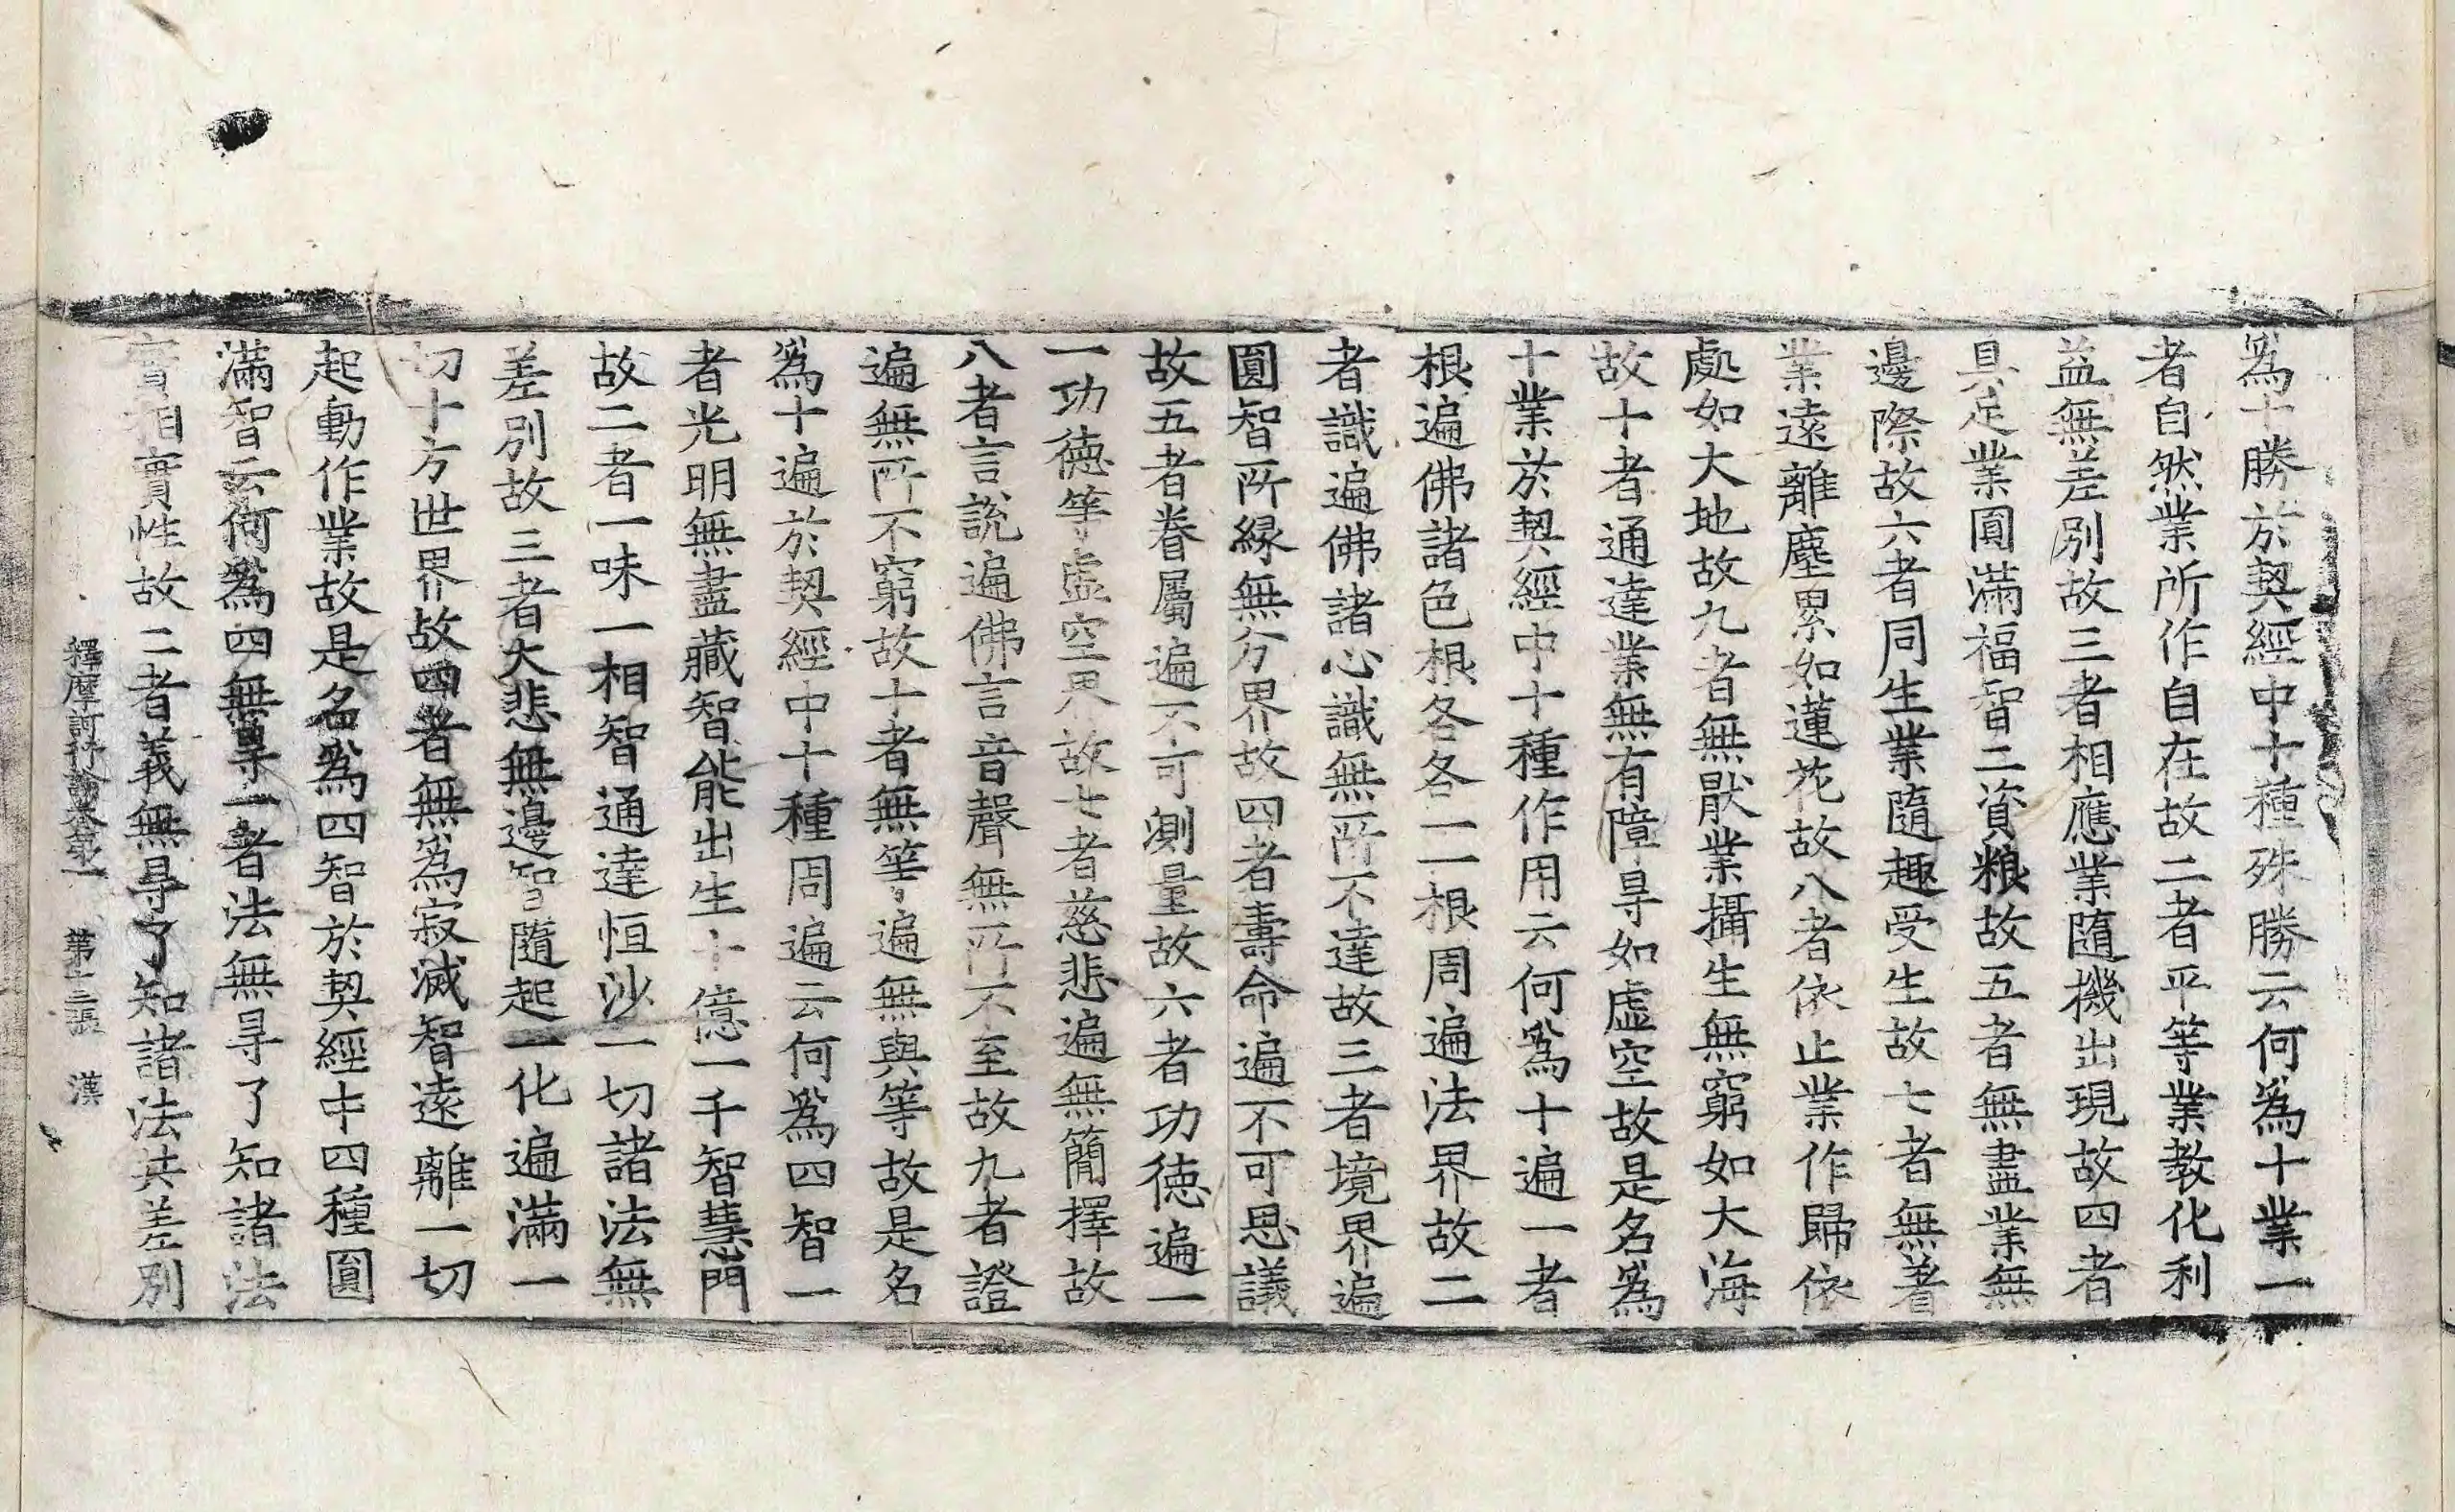 爲十勝於契經中十種殊勝云何爲十業一
者自然業所作自在故二者平等業教化利
益無差別故三者相應業隨機出現故四者
具足業圓滿福智二資粮故五者無盡業無
邊際故六者同生業隨趣受生故七者無著
業遠離塵累如蓮花故八者依止業作歸依
處如大地故九者無猒業攝生無窮如大海
故十者通達業無有障㝵如虛空故是名爲
十業於契經中十種作用云何爲十遍一者
根遍佛諸色根各各一一根周遍法界故二
者識遍佛諸心識無所不達故三者境界遍
圓智所緣無分界故四者壽命遍不可思議
故五者眷屬遍不可測量故六者功德遍一
一功德等虛空界故七者慈悲遍無簡擇故
八者言說遍佛言音聲無所不至故九者證
遍無所不窮故十者無等遍無與等故是名
爲十遍於契經中十種周遍云何爲四智一
者光明無盡藏智能出生十億一千智慧門
故二者一味一相智通達恒沙一切諸法無
差別故三者大悲無邊智隨起一化遍滿一
切十方世界故四者無爲寂滅智遠離一切
起動作業故是名爲四智於契經中四種圓
滿智云何爲四無㝵一者法無㝵了知諸法
實相實性故二者義無㝵了知諸法其差別
釋摩訶衍論卷第一 第十三張 漢